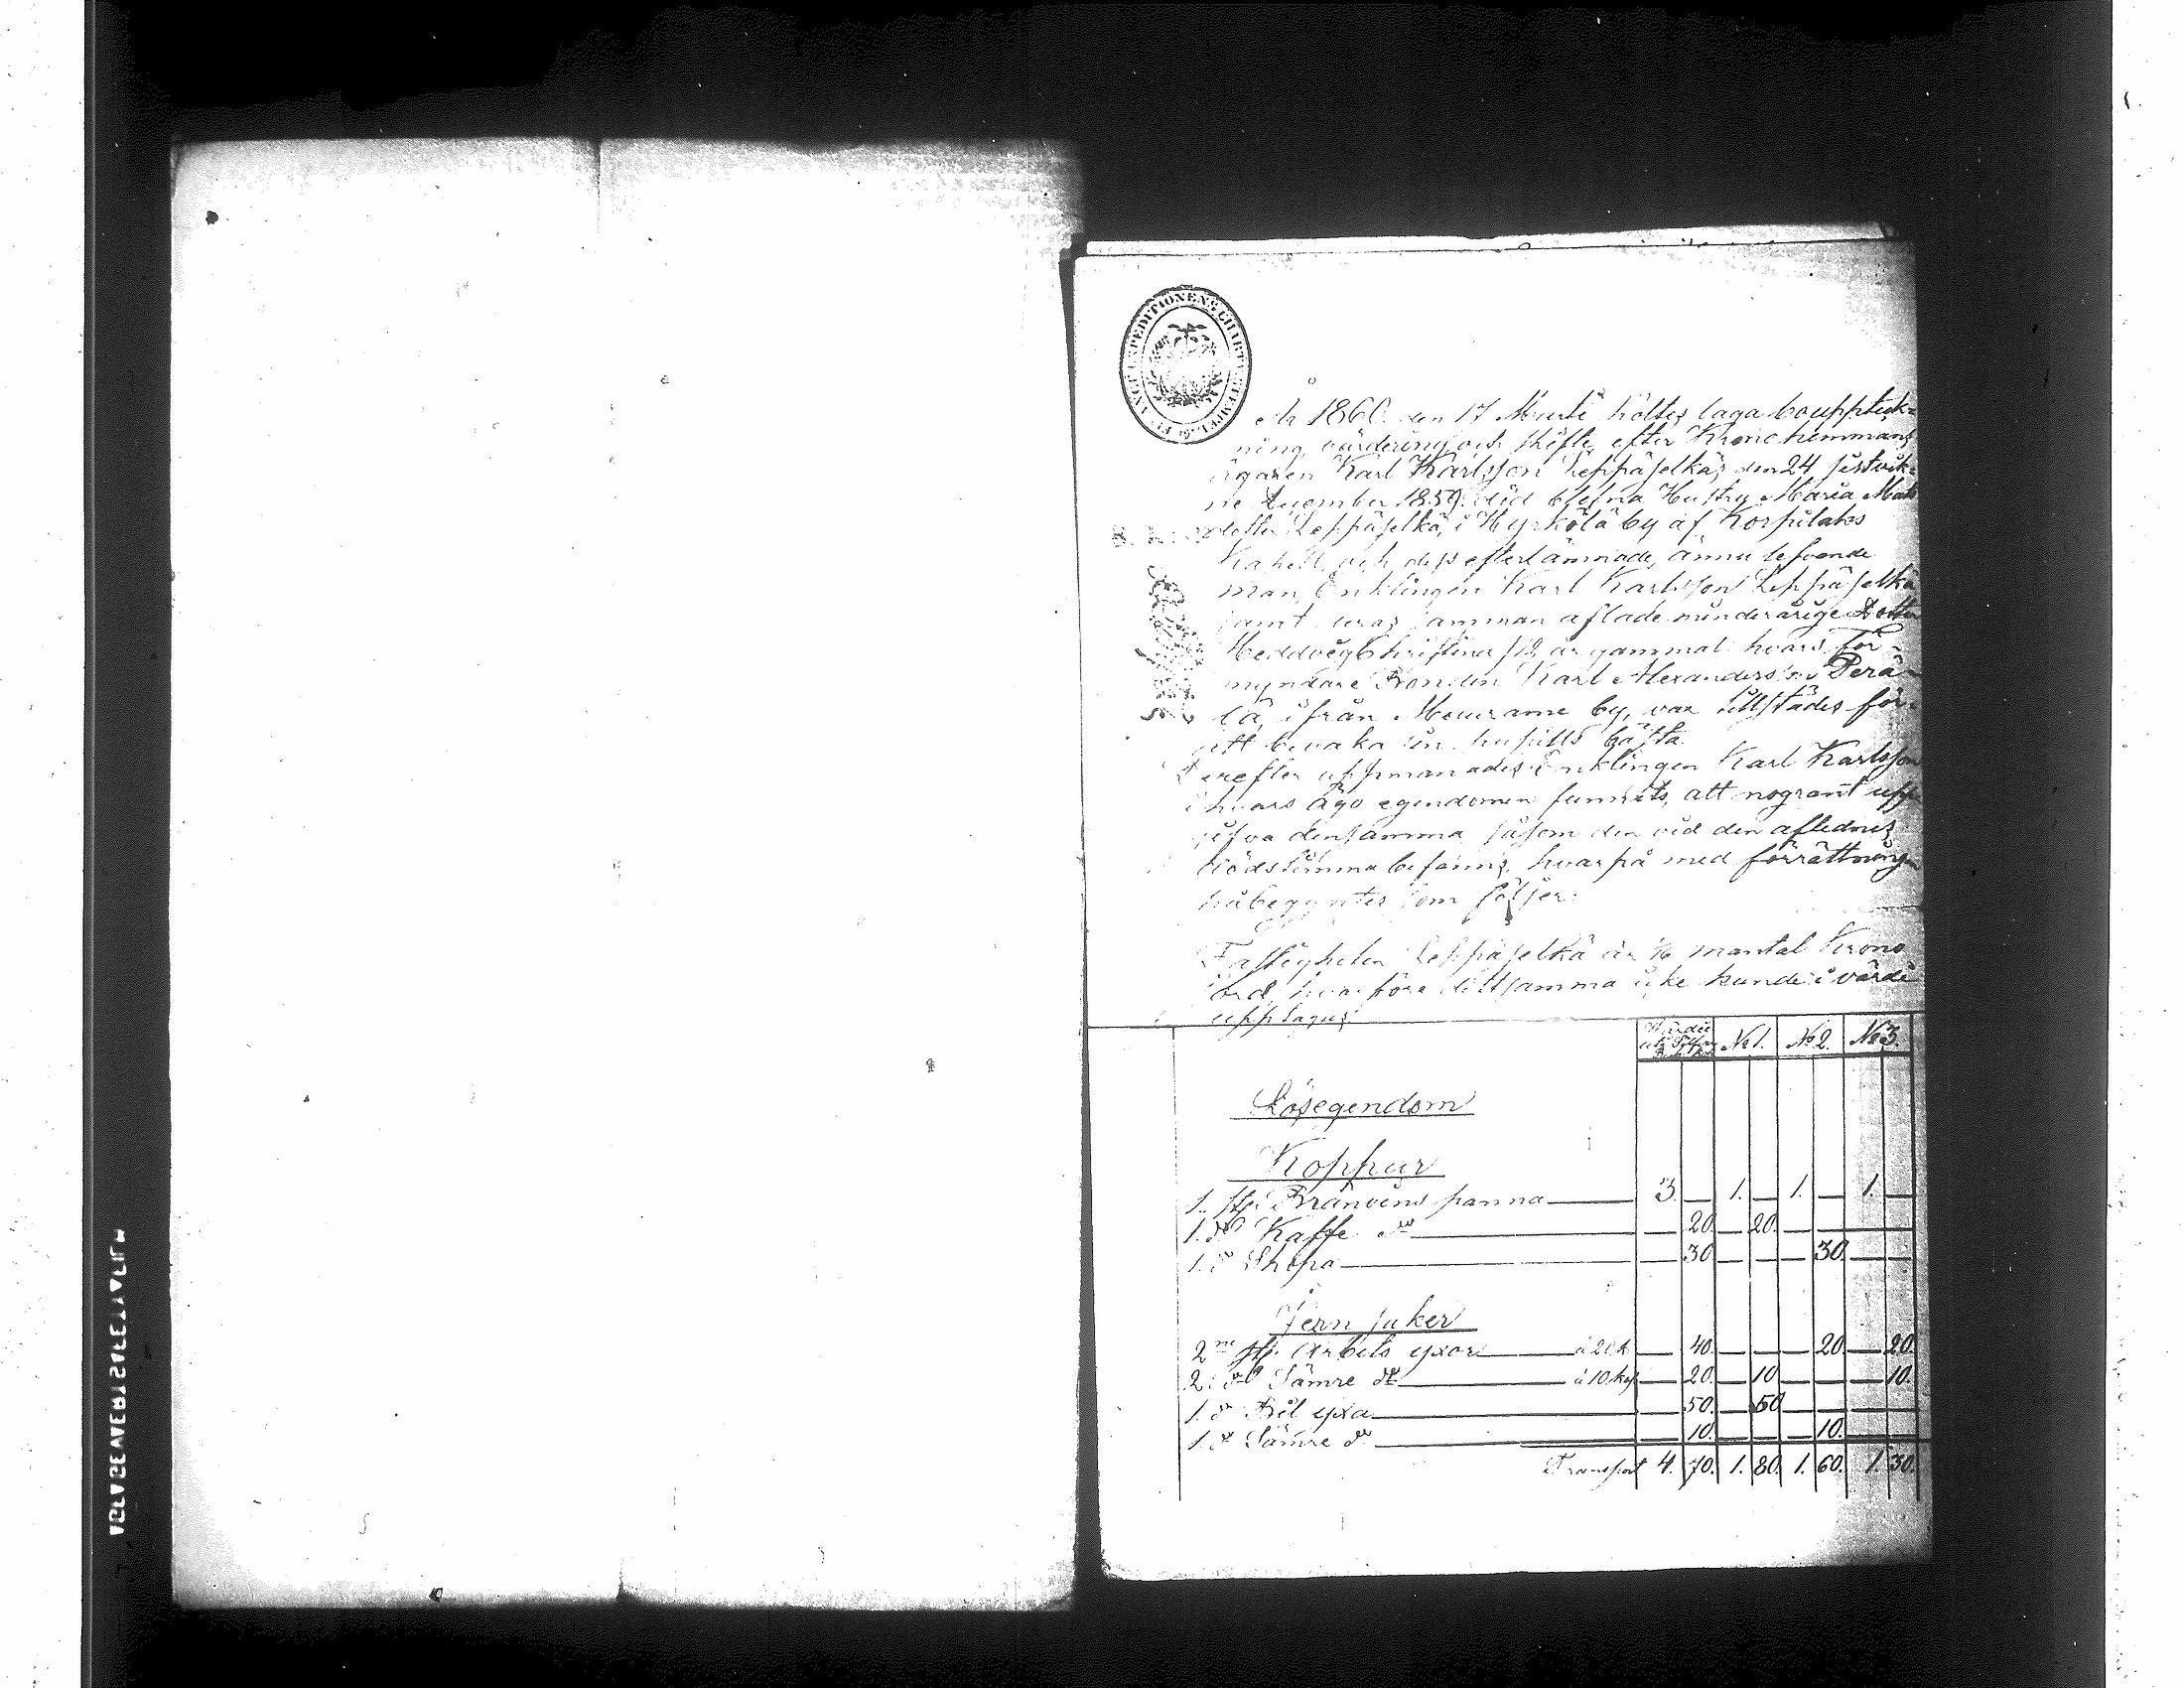 År 1860. den 17 Martii höltes laga bouppteck=
ning, värdering och skifte, efter Kronohemmans
ägaren Karl Karlsson Leppäselkäs den 24 sistvik-
ne December 1859. död blefna Hustru Maria Mats
dotter Leppäselkä, i Hyrkölä by af Korpilaks
Kapell, och dess efterlämnade, ännu lefvande
man, Enklingen Karl Karlsson Leppäselkä
samt deras samman aflade minderårige Dotter
Heddvig Christina, 12 år gammal: hvars För-
myndare Bonden Karl Alexandersson Perä-
lä, ifrån Muurame by, var tillstädes för
att bevaka sin pupills bästa.
Derefter uppmanades Enklingen Karl Karlsson
i hvars ägo egendomen funnits, att nogrant upp
gifva densamma såsom den vid den aflednes
dödstimma befanns, hvarpå med förrättningen
påbegyntes som följer:
Fastigheten Leppäselkä är 1/6 mantal Krono
jord, hvarföre detsamma icke kunde i värde
upptagas.
Värde
N:o 1. N:o 2. N:o 3.
Lösegendom
Koppar
1. st. Bränvins panna 3. — 1. — 1. — 1. —
1. d:o Kaffe d:o — 20. — 20. — — — —
1. d:o Skopa — 30 — — — 30. — —
Jern saker
2:ne st. Arbets yxor à 20 k — 40. — — — 20. — 20.
2. d:o Sämre d:o à 10. kop — 20. — 10 — — — 10.
1. d:o Bil yxa — 50. — 50 — — — —
1. d:o Sämre d:o — 10. — — — 10. — —
Transport 4. 70. 1. 80. 1. 60. 1. 30.